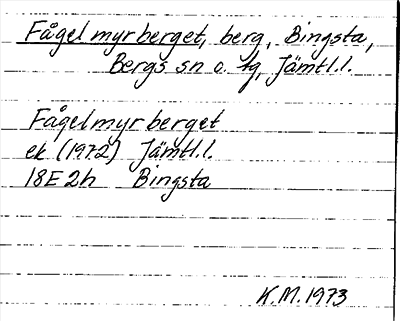 Fågelmyrberget, berg, Bingsta,
Bergs sn o. tg, Jämtl.l.
Fågelmyrberget
ek (1972) Jämtl.l.
18E2h Bingsta
K.M.1973